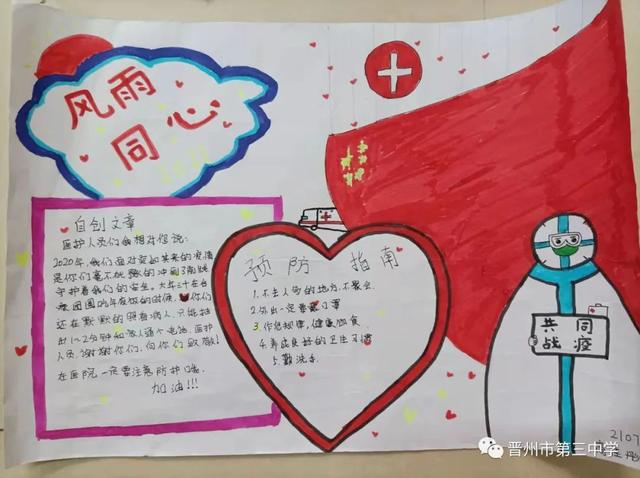 风雨
同心
自创文章
医护人员们我相对您说:
2020年,我们面对突如其来的疫情
是你们毫不犹豫的冲到了前线
守护着我们的安全。大年三十在台
还在默默的照看病人,只能挤
出1~2分钟和家人通个电话,医护
人员,谢谢你们,向你们致敬!
在医院一定要注意防护哦。
加油!!!
预防指南
1.不去人多的地方,不聚会
2.外出一定要戴口罩
3.作息规律,健康饮食
4.养成良好的卫生习惯
5.勤洗手
共同
战疫
2107
晋州市第三中学